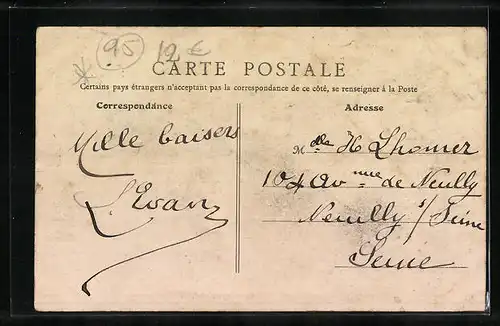 95
12 €
CARTE POSTALE
Certains pays étrangers n'acceptant pas la correspondance de ce côté, se renseigner à la Poste
Correspondance
Adresse
Mille baisers
Mdlle H Lhomer
104 Avnue de Neuilly
Neuilly s/ Seine
Seine